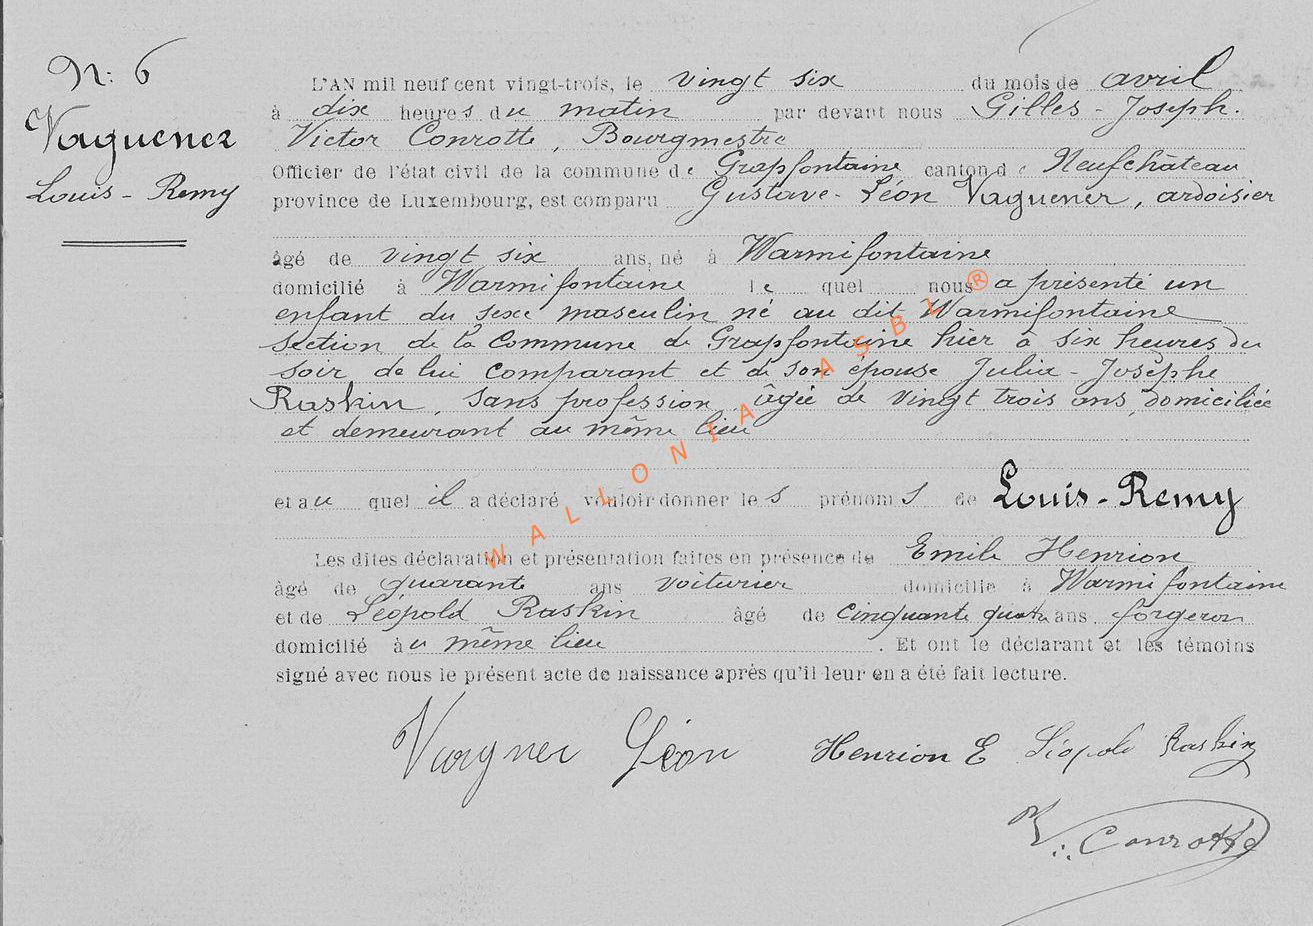 N: 6
Vaguener
Louis - Remy
L'AN mil neuf cent vingt-trois, le vingt six du mois de avril
à dix heures du matin par devant nous Gilles - Joseph -
Victor Conrotte, Bourgmestre
Officier de l'état civil de la commune de Grapfontaine canton de Neufchâteau
province de Luxembourg, est comparu Gustave - Léon Vaguener, ardoisier
âgé de vingt six ans, né à Warmifontaine
domicilié à Warmifontaine le quel nous a présenté un
enfant du sexe masculin né au dit Warmifontaine
section de la Commune de Grapfontaine hier à six heures du
soir de lui comparant et de son épouse Julie - Josèphe
Raskin, sans profession, âgée de vingt trois ans, domiciliée
et demeurant au même lieu
et au quel il a déclaré vouloir donner les prénoms de Louis - Remy
Les dites déclaration et présentation faites en présence de Emile Henrion
âgé de quarante ans voiturier domicilié à Warmifontaine
et de Léopold Raskin âgé de cinquante quatre ans forgeron
domicilié au même lieu. Et ont le déclarant et les témoins
signé avec nous le présent acte de naissance après qu'il leur en a été fait lecture.
Vagner Léon Henrion E Léopold Raskin
V. Conrotte
WALLONIA ASBL ®